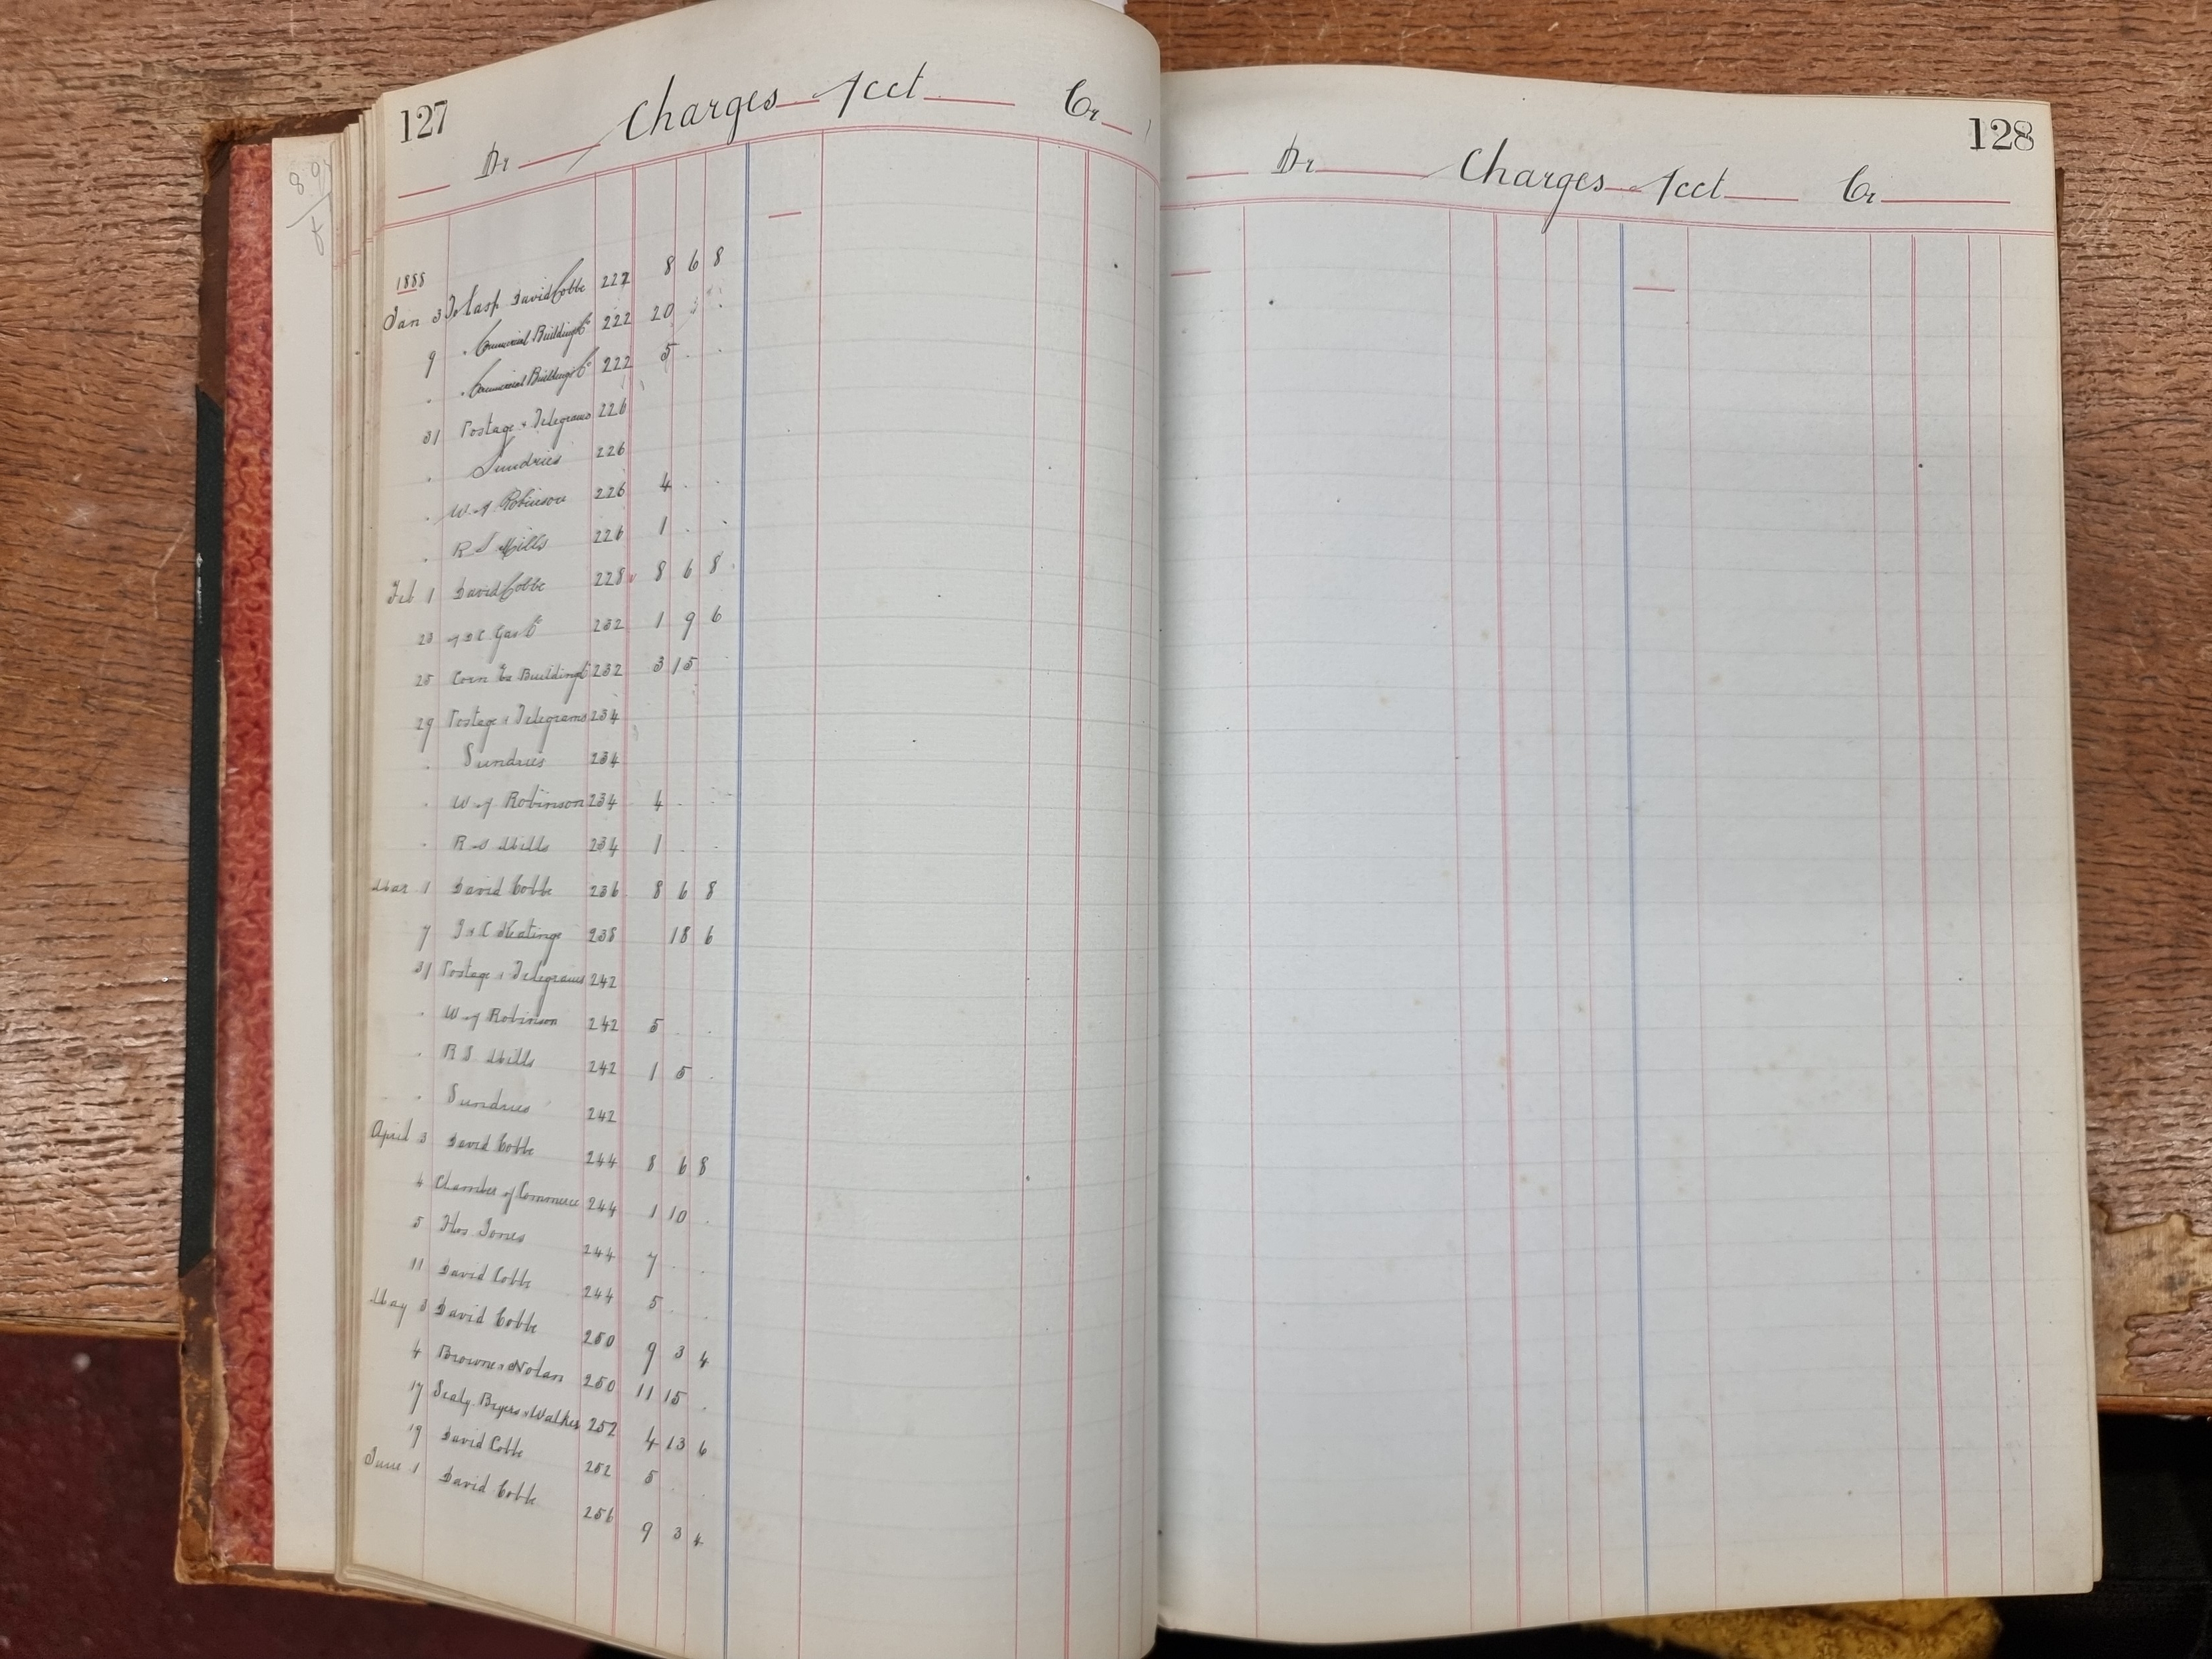 127
Dr Charges Acct Cr
1888
Jan 3 To Cash David Cobbe 222 8 6 8
9 " Commercial Buildings Co 222 20 " "
" " Commercial Buildings Co 222 5 " "
31 Postage & Telegrams 226
" Sundries 226
" W J Robinson 226 4 " "
" R S Mills 226 1 " "
Feb 1 David Cobbe 228 8 6 8
23 Gas Co 232 1 9 6
25 Corn Ex Buildings 232 3 15
29 Postage & Telegrams 234
" Sundries 234
" W J Robinson 234 4 " "
" R S Mills 234 1 " "
Mar 1 David Cobbe 236 8 6 8
7 J & C Keatinge 238 18 6
31 Postage & Telegrams 242
" W J Robinson 242 5 " "
" R S Mills 242 1 5 "
" Sundries 242
April 3 David Cobbe 244 8 6 8
4 Chamber of Commerce 244 1 10 "
5 Thos Jones 244 7 " "
11 David Cobbe 244 5 " "
May 3 David Cobbe 250 9 3 4
4 Browne & Nolan 250 11 15 "
17 Sealy Bryers & Walker 252 4 13 6
19 David Cobbe 252 5 " "
June 1 David Cobbe 256 9 3 4
128
Dr Charges Acct Cr